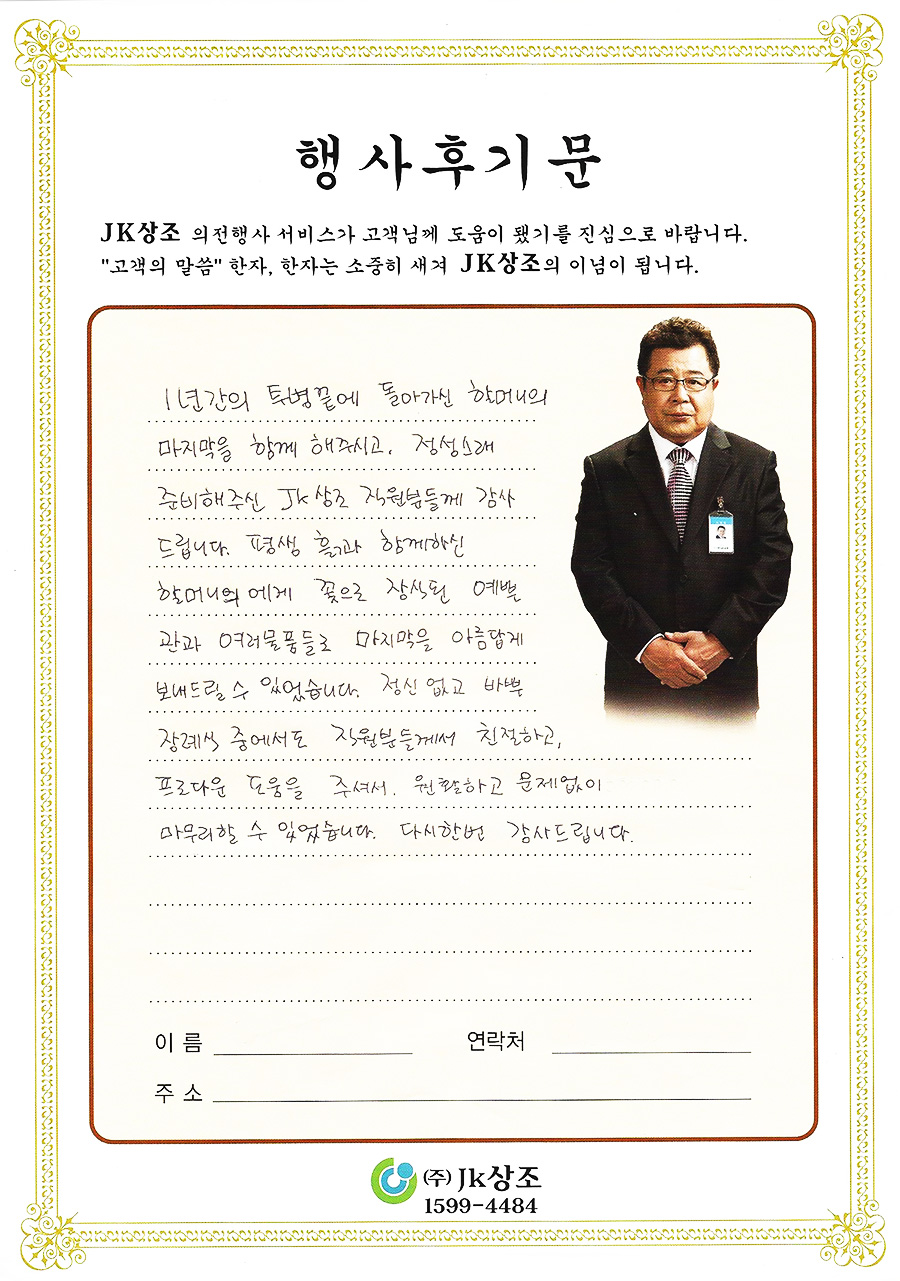 행사후기문
JK상조 의전행사 서비스가 고객님께 도움이 됐기를 진심으로 바랍니다.
"고객의 말씀" 한자, 한자는 소중히 새겨 JK상조의 이념이 됩니다.
1년간의 투병끝에 돌아가신 할머니의
마지막을 함께 해주시고, 정성스레
준비해주신 JK상조 직원분들께 감사
드립니다. 평생 흙과 함께하신
할머니의에게 꽃으로 장식된 예쁜
관과 여러물품들로 마지막을 아름답게
보내드릴 수 있었습니다. 정신 없고 바쁜
장례식 중에서도 직원분들께서 친절하고,
프로다운 도움을 주셔서. 원활하고 문제없이
마무리할 수 있었습니다. 다시한번 감사드립니다.
이 름 연락처
주 소
(주) Jk상조
1599-4484